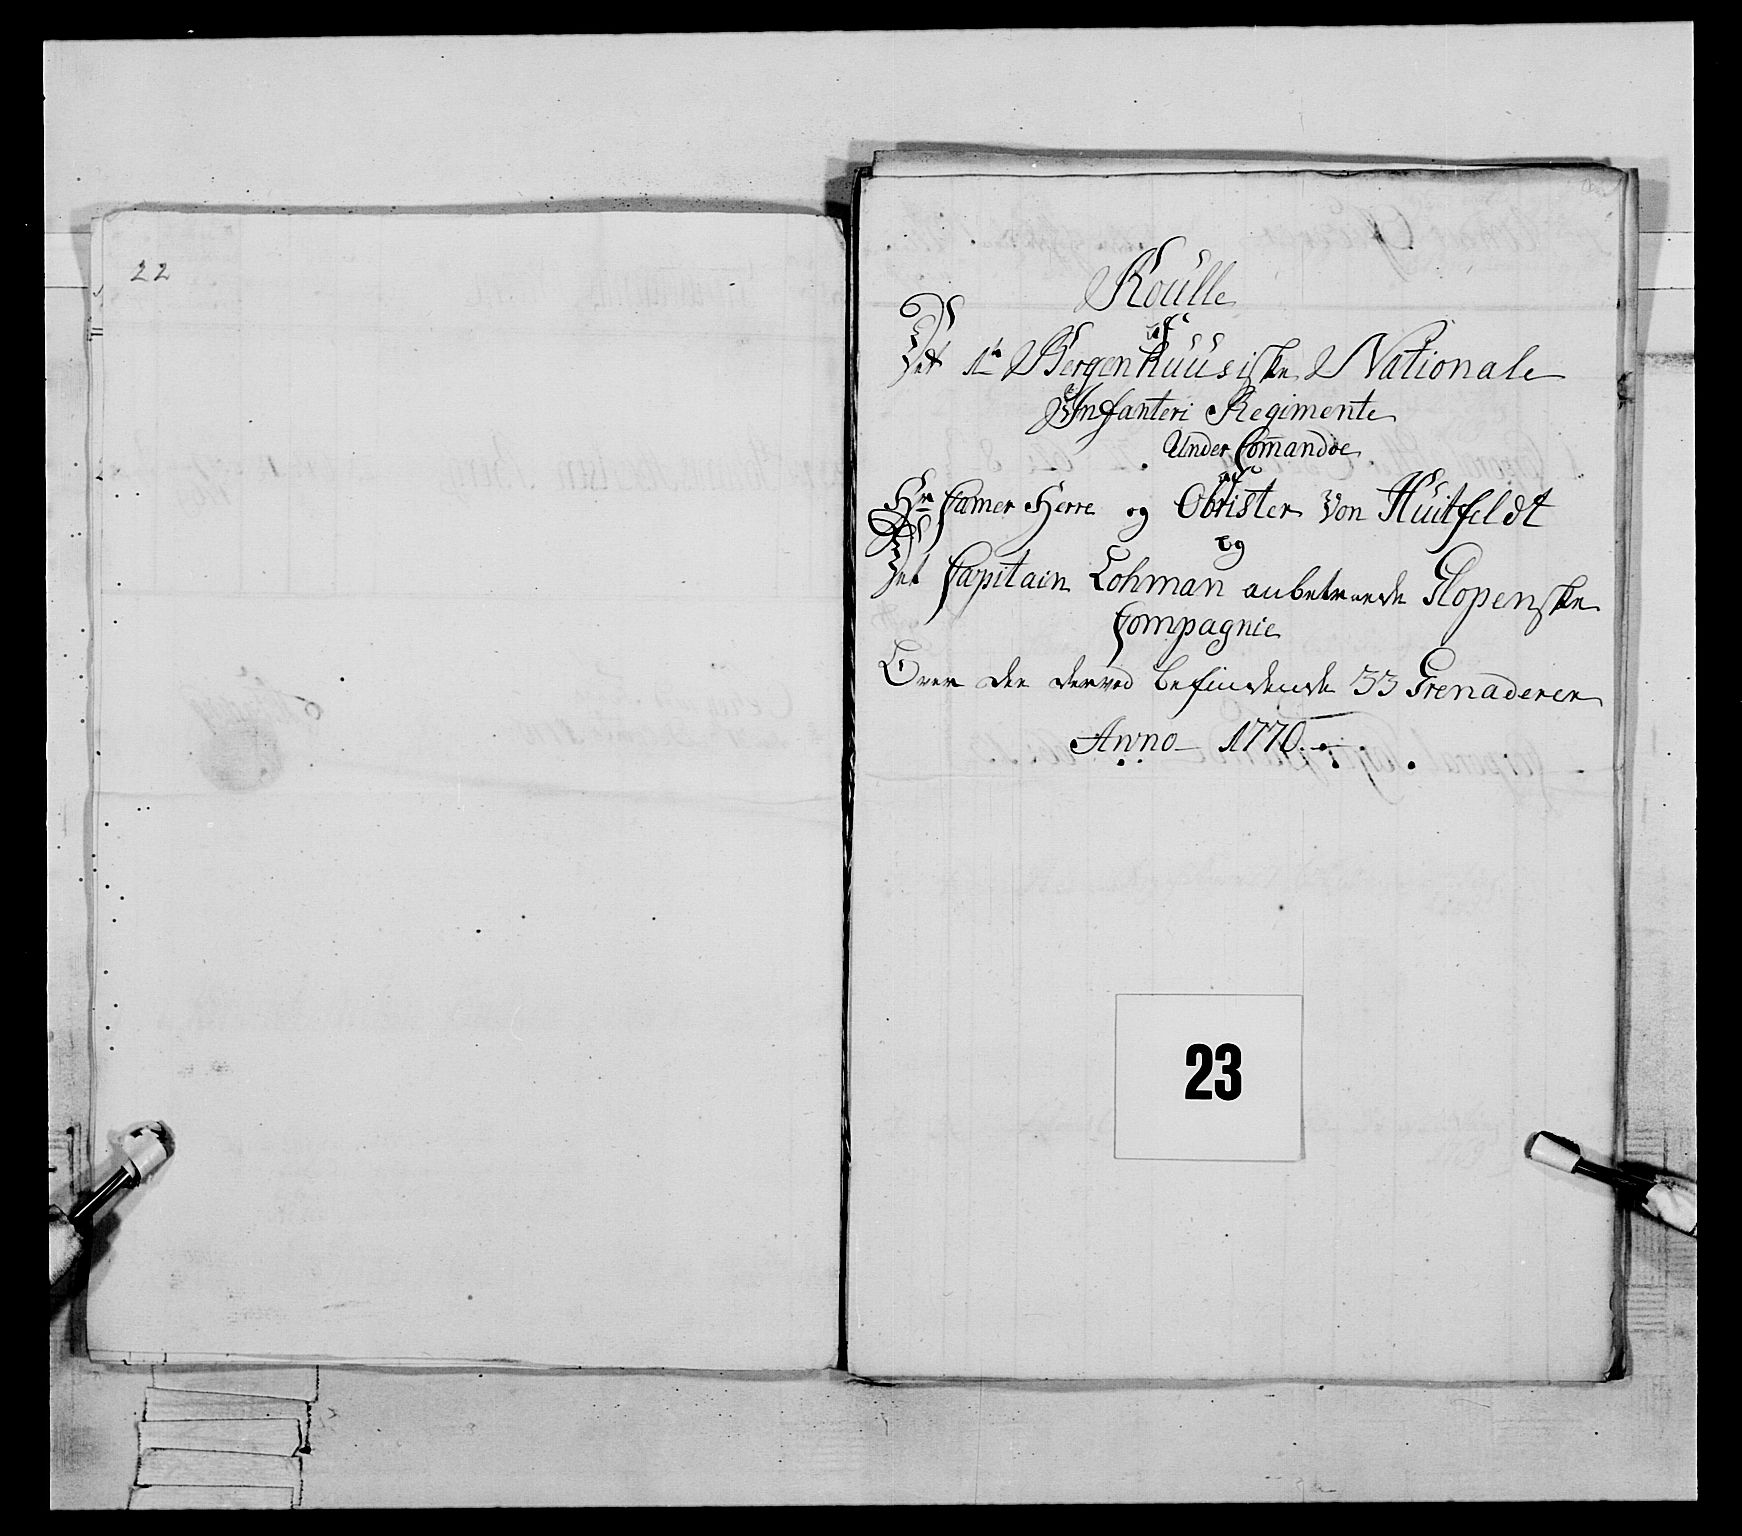 22
Roulle
af
Det 1te Bergenhuusiske Nationale
Infanteri Regimente
Under Comandoe
af
Hr Camer Herre og Obrister Von Huitfeldt
og
Det Capitain Lohman anbetroede Glopenske
Compagnie
Over dee derved befindende 33 Grenaderer
Anno 1770.
23